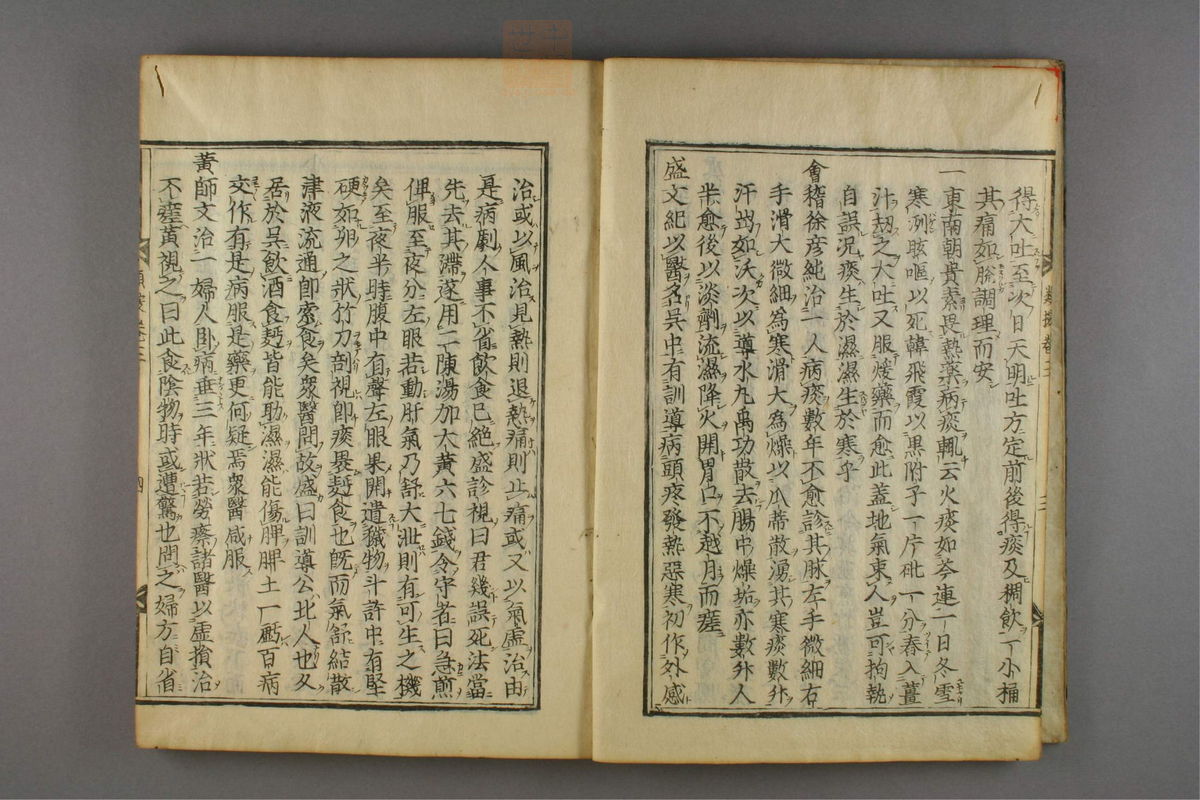 得大吐至次日天明吐方定前後得痰及稠飲一小桶
其痛如脫調理而安
一東南朝貴素畏熱藥病痰輒云火痰如芩連一日冬雪
寒冽眩嘔以死韓飛霞以黒附子一片砒一分舂入薑
汁劫之大吐又服煖藥而愈此蓋地氣東人豈可拘執
自誤况痰生於濕濕生於寒乎
會稽徐彦純治一人病痰數年不愈診其脉左手微細右
手滑大微細為寒滑大為燥以瓜蒂散湧其寒痰數升
汗出如沃次以導水丸禹功散去腸中燥垢亦數升人
半愈後以淡劑流濕降火開胃口不越月而瘥
盛文紀以醫名吳中有訓導病頭疼發熱惡寒初作外感
治或以風治見熱則退熱痛則止痛或又以氣虛治由
是病劇人事不省飲食已絶盛診視曰君幾誤死法當
先去其滯遂用二陳湯加大黃六七錢令守者曰急煎
俾服至夜分左眼若動肝氣乃舒大泄則有可生之機
矣至夜半時腹中有聲左眼果開遺穢物斗許中有堅
硬如卵之狀竹刀剖視即痰暴麪食也既而氣舒結散
津液流通即索食矣衆醫問故盛曰訓導公北人也久
居於吳飲酒食麪皆能助濕濕能傷脾脾土一虧百病
交作有是病服是藥更何疑焉衆醫咸服
黃師文治一婦人卧病垂三年狀若勞瘵諸醫以虛損治
不瘥黃視之曰此食陰物時或遭驚也問之婦方自省